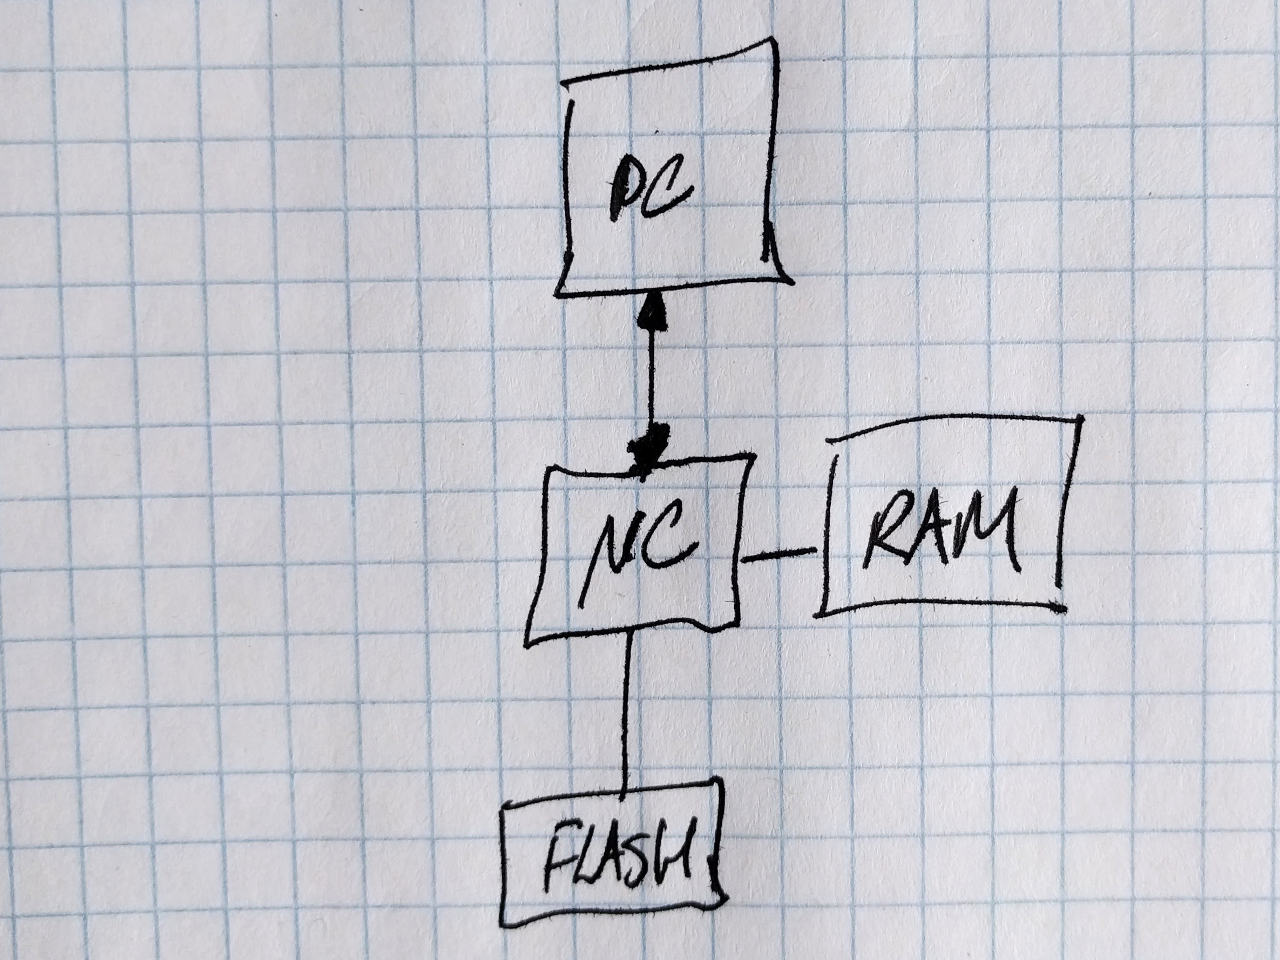 PC
µC
RAM
FLASH